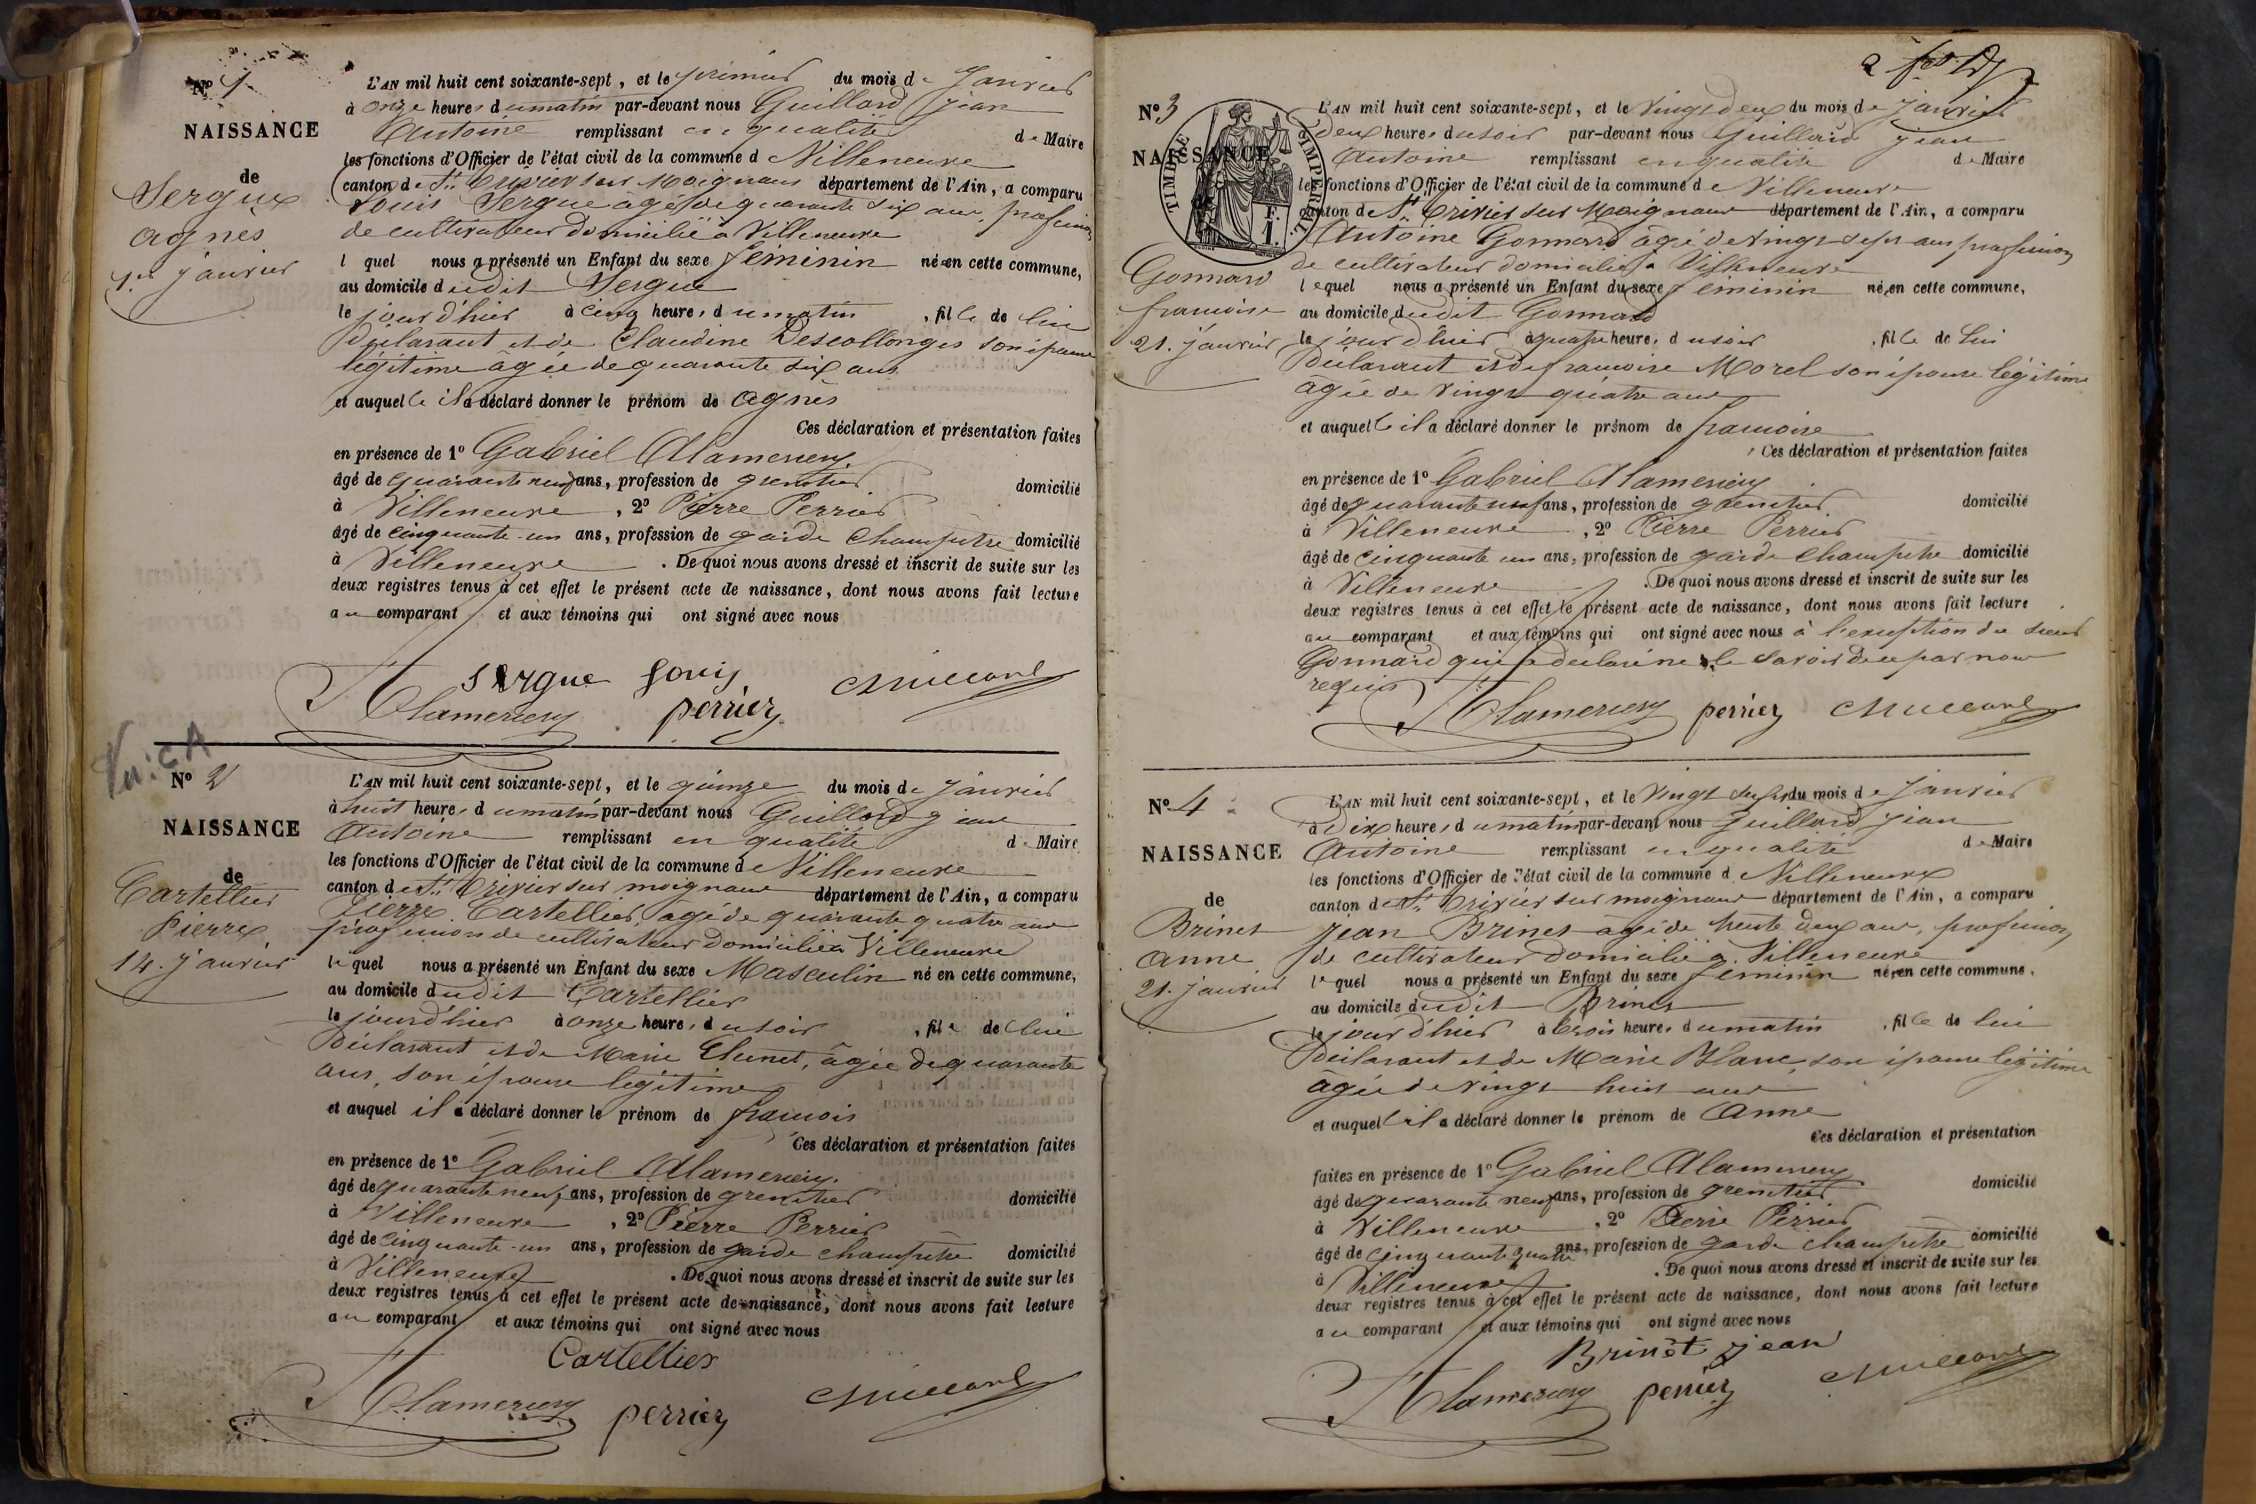 Nº 1
NAISSANCE
de
Sergue
agnes
1er janvier
L'AN mil huit cent soixante-sept, et le premier du mois de Janvier
à onze heures du matin par-devant nous Guillard jean
Antoine remplissant en qualité de Maire
les fonctions d'Officier de l'état civil de la commune d Villeneuve
canton de St. Trivier sur Moignans département de l'Ain, a comparu
Louis Sergue agé de quarante six ans, profession
de cultivateur domicilié à Villeneuve
l quel nous a présenté un Enfant du sexe féminin né en cette commune,
au domicile dudit Sergue
le jour d'hier à cinq heures du matin, fille de lui
Déclarant et de Claudine Descollonges son épouse
légitime âgée de quarante six ans
et auquelle il a déclaré donner le prénom de agnès
Ces déclaration et présentation faites
en présence de 1º Gabriel Alamercery
âgé de quarante neuf ans, profession de grenetier domicilié
à Villeneuve, 2º Pierre Perrier
âgé de cinquante-un ans, profession de garde champêtre domicilié
à Villeneuve. De quoi nous avons dressé et inscrit de suite sur les
deux registres tenus à cet effet le présent acte de naissance, dont nous avons fait lecture
au comparant et aux témoins qui ont signé avec nous
Sergue Louis
Alamercery perrier Guillard
Vu: CA
Nº 2
NAISSANCE
de
Cartellier
Pierre
14. janvier
L'AN mil huit cent soixante-sept, et le quinze du mois de Janvier
à huit heures du matin par-devant nous Guillard jean
Antoine remplissant en qualité de Maire
les fonctions d'Officier de l'état civil de la commune de Villeneuve
canton de St. Trivier sur moignans département de l'Ain, a comparu
Pierre Cartellier agé de quarante quatre ans
profession de cultivateur domicilié à Villeneuve
lequel nous a présenté un Enfant du sexe Masculin né en cette commune,
au domicile dudit Cartellier
le jour d'hier à onze heures du soir, fils de lui
Déclarant et de Marie Clunet, âgée de quarante
ans, son épouse légitime
et auquel il a déclaré donner le prénom de françois
Ces déclaration et présentation faites
en présence de 1º Gabriel Alamercery
âgé de quarante neuf ans, profession de grenetier domicilié
à Villeneuve, 2º Pierre Perrier
âgé de cinquante-un ans, profession de garde champêtre domicilié
à Villeneuve. De quoi nous avons dressé et inscrit de suite sur les
deux registres tenus à cet effet le présent acte de naissance, dont nous avons fait lecture
au comparant et aux témoins qui ont signé avec nous
Cartellier
Alamercery perrier Guillard
2
Nº 3
NAISSANCE
TIMBRE IMPERIAL
Gonnard
francoise
21. janvier
L'AN mil huit cent soixante-sept, et le vingt deux du mois de janvier
à deux heures du soir par-devant nous Guillard jean
Antoine remplissant en qualité de Maire
les fonctions d'Officier de l'état civil de la commune de Villeneuve
canton de St. Trivier sur Moignans département de l'Ain, a comparu
Antoine Gonnard âgé de vingt sept ans profession
de cultivateur domicilié à Villeneuve
lequel nous a présenté un Enfant du sexe féminin née en cette commune,
au domicile dudit Gonnard
le jour d'hier à quatre heures du soir, fille de lui
Déclarant et de francoise Morel son épouse légitime
agée de vingt quatre ans
et auquelle il a déclaré donner le prénom de francoise
Ces déclaration et présentation faites
en présence de 1º Gabriel Alamercery
âgé de quarante neuf ans, profession de grenetier domicilié
à Villeneuve, 2º Pierre Perrier
âgé de cinquante un ans, profession de garde champêtre domicilié
à Villeneuve. De quoi nous avons dressé et inscrit de suite sur les
deux registres tenus à cet effet le présent acte de naissance, dont nous avons fait lecture
au comparant et aux témoins qui ont signé avec nous à l'exception du sieur
Gonnard qui a déclaré ne le savoir de ce par nous
requis
Alamercery perrier Guillard
Nº 4
NAISSANCE
de
Brinet
anne
21. janvier
L'AN mil huit cent soixante-sept, et le vingt du mois de janvier
à Dix heures du matin par-devant nous Guillard jean
Antoine remplissant en qualité de Maire
les fonctions d'Officier de l'état civil de la commune d Villeneuve
canton de St. Trivier sur moignans département de l'Ain, a comparu
jean Brinet agé de trente deux ans, profession
de cultivateur domicilié à Villeneuve
lequel nous a présenté un Enfant du sexe féminin née en cette commune,
au domicile dudit Brinet
le jour d'hier à trois heures du matin, fille de lui
Déclarant et de Marie Blanc, son épouse légitime
âgée de vingt huit ans
et auquelle il a déclaré donner le prénom de Anne
Ces déclaration et présentation
faites en présence de 1º Gabriel Alamercery
âgé de quarante neuf ans, profession de grenetier domicilié
à Villeneuve, 2º Pierre Perrier
âgé de cinquante quatre ans, profession de garde champêtre domicilié
à Villeneuve. De quoi nous avons dressé et inscrit de suite sur les
deux registres tenus à cet effet le présent acte de naissance, dont nous avons fait lecture
au comparant et aux témoins qui ont signé avec nous
Brinet jean
Alamercery perrier Guillard